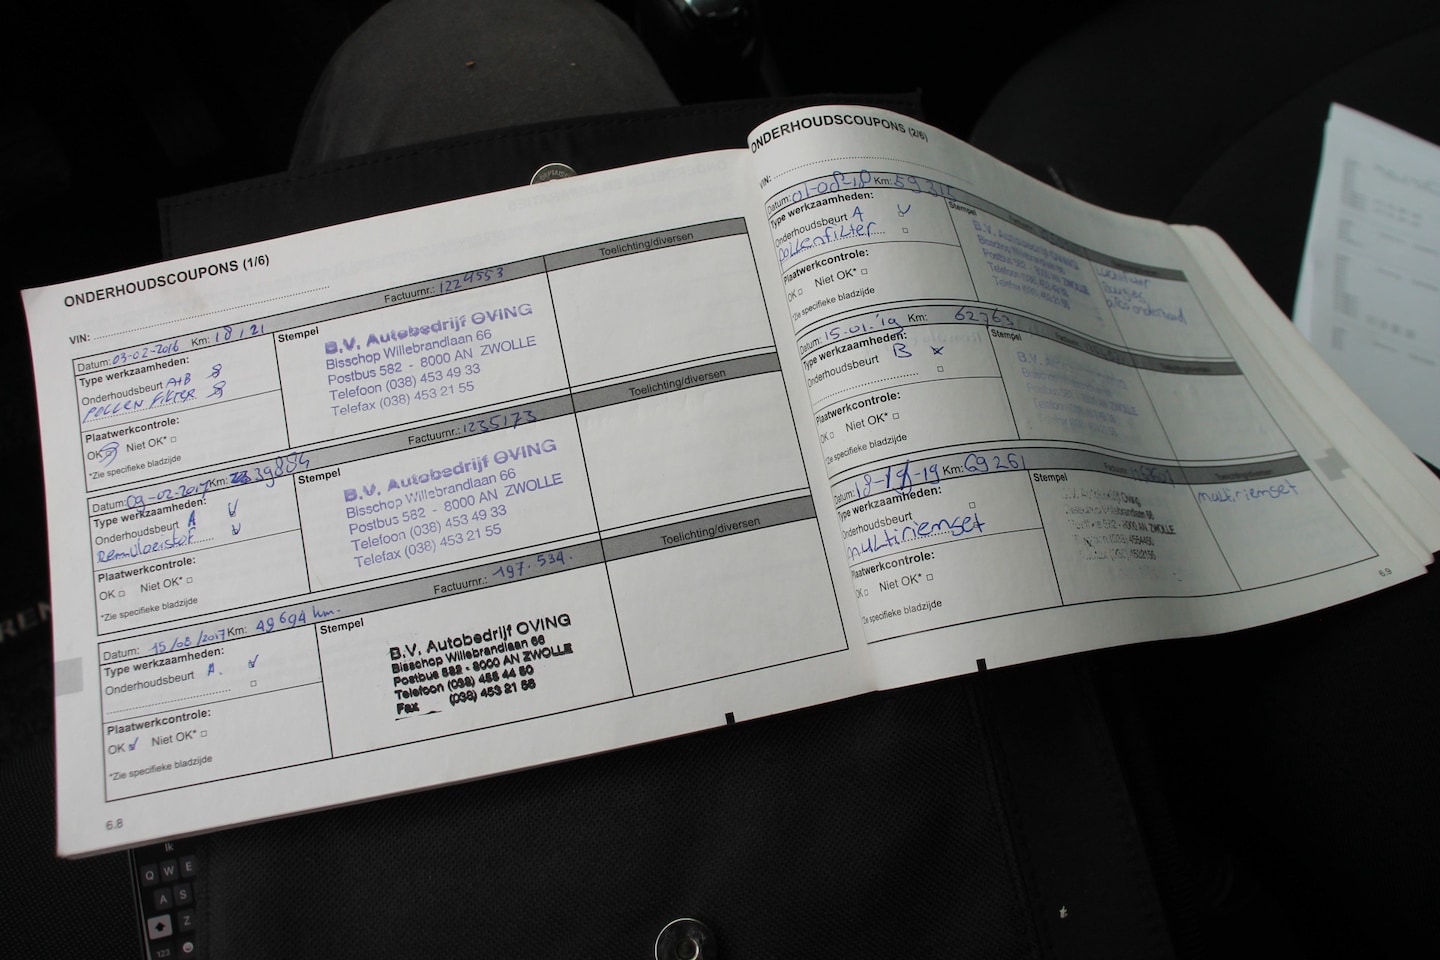 ONDERHOUDSCOUPONS (1/6)
VIN:
Datum: 03-02-2016 Km: 18121 Factuurnr.: 1224553
Type werkzaamheden:
Onderhoudsbeurt A+B
POLLEN FILTER
Plaatwerkcontrole:
OK Niet OK*
*Zie specifieke bladzijde
Stempel
B.V. Autobedrijf OVING
Bisschop Willebrandlaan 66
Postbus 582 - 8000 AN ZWOLLE
Telefoon (038) 453 49 33
Telefax (038) 453 21 55
Toelichting/diversen
Datum: 09-02-2017 Km: 39884 Factuurnr.: 1235173
Type werkzaamheden:
Onderhoudsbeurt A
Remvloeistof
Plaatwerkcontrole:
OK Niet OK*
*Zie specifieke bladzijde
Stempel
B.V. Autobedrijf OVING
Bisschop Willebrandlaan 66
Postbus 582 - 8000 AN ZWOLLE
Telefoon (038) 453 49 33
Telefax (038) 453 21 55
Toelichting/diversen
Datum: 15/08/2017 Km: 49694 km. Factuurnr.: 197.534.
Type werkzaamheden:
Onderhoudsbeurt A.
Plaatwerkcontrole:
OK Niet OK*
*Zie specifieke bladzijde
Stempel
B.V. Autobedrijf OVING
Bisschop Willebrandlaan 66
Postbus 582 - 8000 AN ZWOLLE
Telefoon (038) 455 44 50
Fax (038) 453 21 55
Toelichting/diversen
6.8
ONDERHOUDSCOUPONS (2/6)
VIN:
Datum: 01-08-18 Km:
Type werkzaamheden:
Onderhoudsbeurt A
pollenfilter
Plaatwerkcontrole:
OK Niet OK*
*Zie specifieke bladzijde
Stempel
B.V. Autobedrijf OVING
Bisschop Willebrandlaan 66
Postbus 582 - 8000 AN ZWOLLE
Telefoon (038) 453 49 33
Telefax (038) 453 21 55
Datum: 15.01.'19 Km: 62763
Type werkzaamheden:
Onderhoudsbeurt B
Plaatwerkcontrole:
OK Niet OK*
*Zie specifieke bladzijde
Stempel
Datum: 18-11-19 Km: 69261
Type werkzaamheden:
Onderhoudsbeurt
multiriemset
Plaatwerkcontrole:
OK Niet OK*
*Zie specifieke bladzijde
Stempel
Autobedrijf OVING
Toelichting/diversen
multiriemset
6.9
Ik
Q W E
A S
Z
123